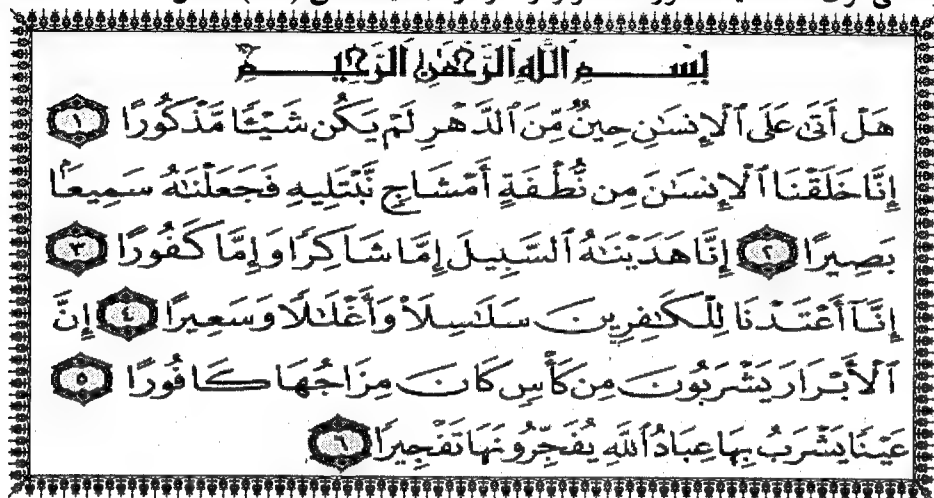 بِسْمِ ٱللَّهِ ٱلرَّحْمَٰنِ ٱلرَّحِيمِ
هَلْ أَتَىٰ عَلَى ٱلْإِنسَٰنِ حِينٌ مِّنَ ٱلدَّهْرِ لَمْ يَكُن شَيْـًٔا مَّذْكُورًا ١
إِنَّا خَلَقْنَا ٱلْإِنسَٰنَ مِن نُّطْفَةٍ أَمْشَاجٍ نَّبْتَلِيهِ فَجَعَلْنَٰهُ سَمِيعًۢا
بَصِيرًا ٢ إِنَّا هَدَيْنَٰهُ ٱلسَّبِيلَ إِمَّا شَاكِرًا وَإِمَّا كَفُورًا ٣
إِنَّآ أَعْتَدْنَا لِلْكَٰفِرِينَ سَلَٰسِلَا۟ وَأَغْلَٰلًا وَسَعِيرًا ٤ إِنَّ
ٱلْأَبْرَارَ يَشْرَبُونَ مِن كَأْسٍ كَانَ مِزَاجُهَا كَافُورًا ٥
عَيْنًا يَشْرَبُ بِهَا عِبَادُ ٱللَّهِ يُفَجِّرُونَهَا تَفْجِيرًا ٦